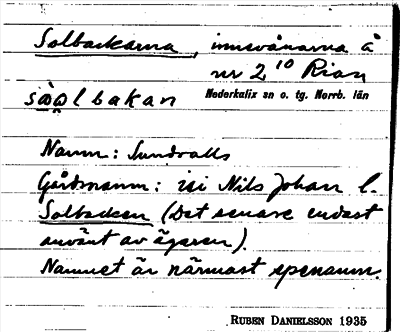 Solbackarna, innevånarna å
nr 2¹⁰ Rian
sòo̯lbakan
Nederkalix sn o. tg. Norrb. län
Namn: Sundvalls
Gårdsnamn: isi Nils Johan l.
Solbacken (Det senare endast
använt av ägaren).
Namnet är närmast öpenamn.
RUBEN DANIELSSON 1935